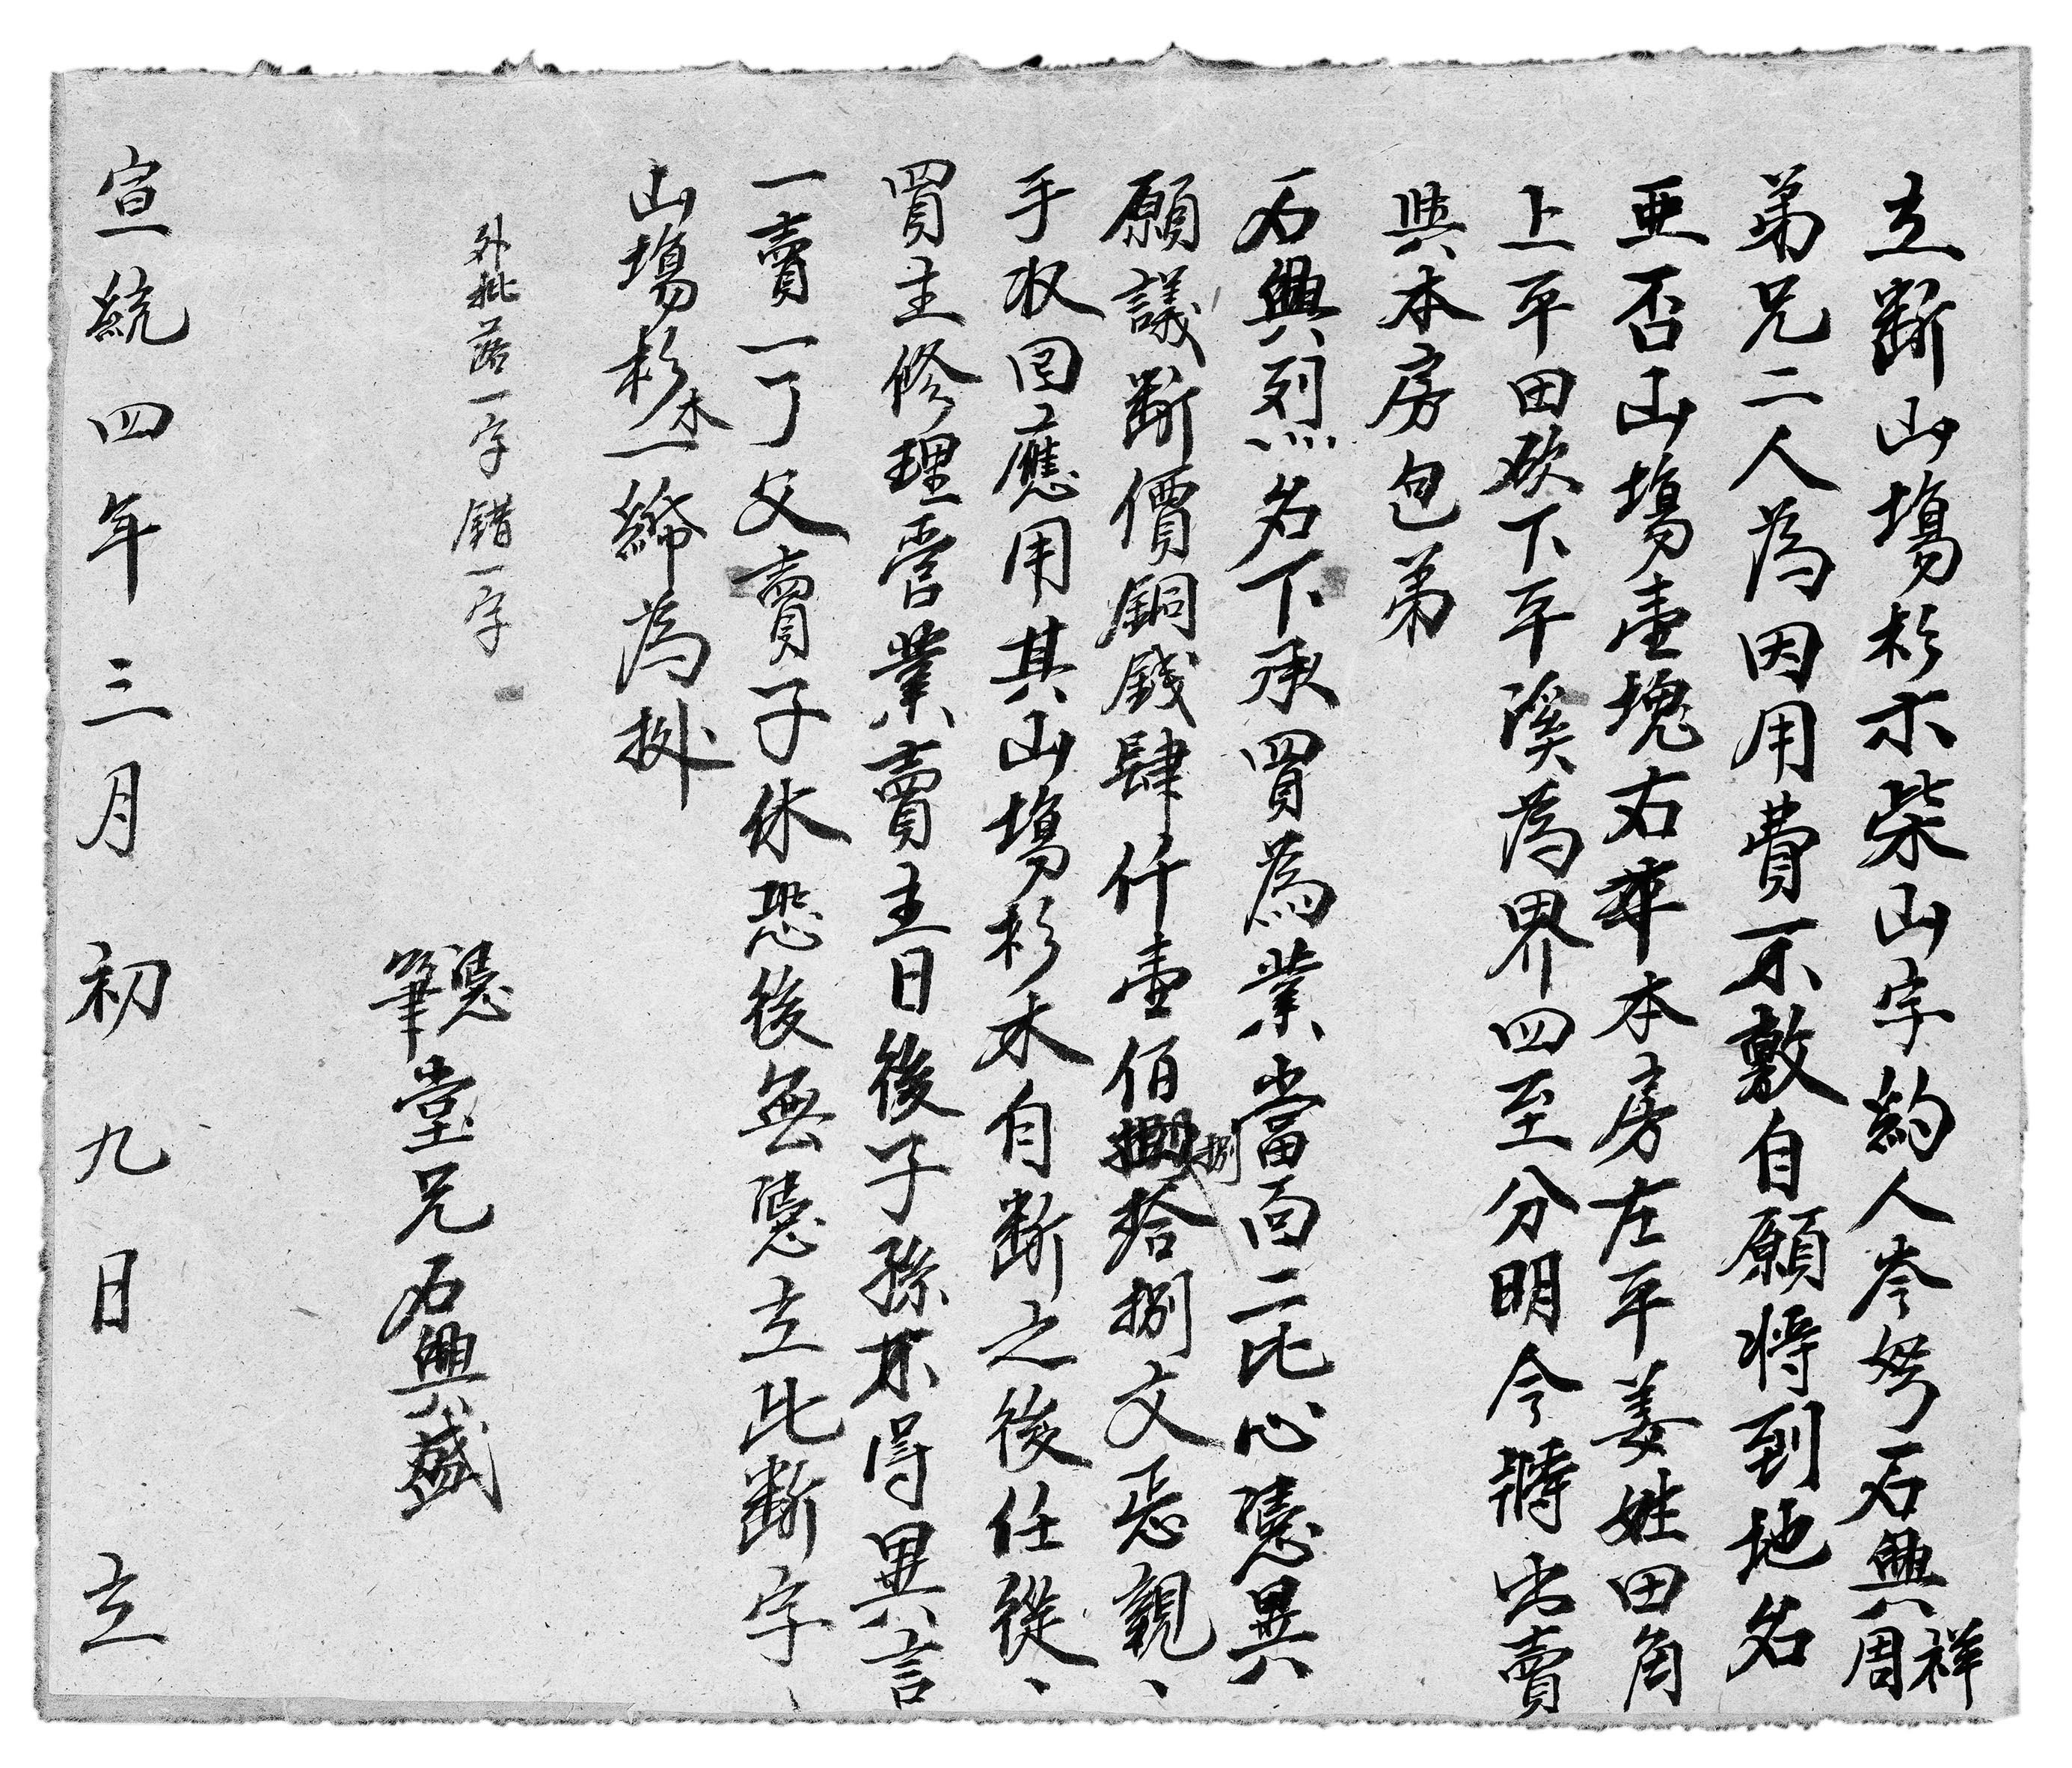 立断山塲杉木柴山字約人岑孥石興祥周
弟兄二人為因用費不敷自願将到地名
亜否山塲壹塊右平本房左平姜姓田角
上平田砍下平溪為界四至分明今將出賣
與本房包弟
石興烈名下承買為業當面二比心慿異
願議断價銅錢肆仟壹佰捌拾捌文悉親、
手收囬應用其山塲杉木自断之後任從、
買主修理管業賣主日後子孫不得異言
一賣一了父賣子休恐後無慿立此断字、
山塲杉木一紙為拠
外批落一字錯一字
慿筆堂兄石興盛
宣統四年三月初九日立